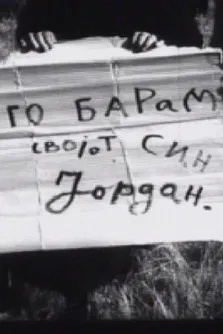 го барам
својот син
Јордан.